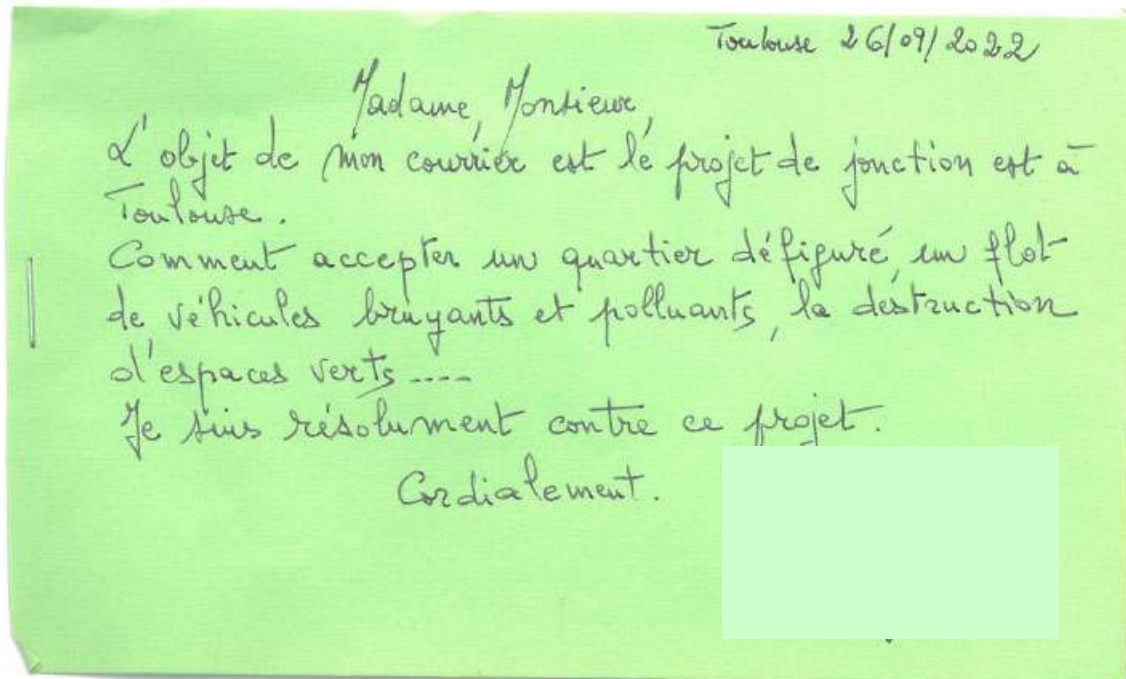 Toulouse 26/09/2022
Madame, Monsieur,
L'objet de mon courrier est le projet de jonction est à
Toulouse.
Comment accepter un quartier défiguré, un flot
de véhicules bruyants et polluants, la destruction
d'espaces verts ----
Je suis résolument contre ce projet.
Cordialement.